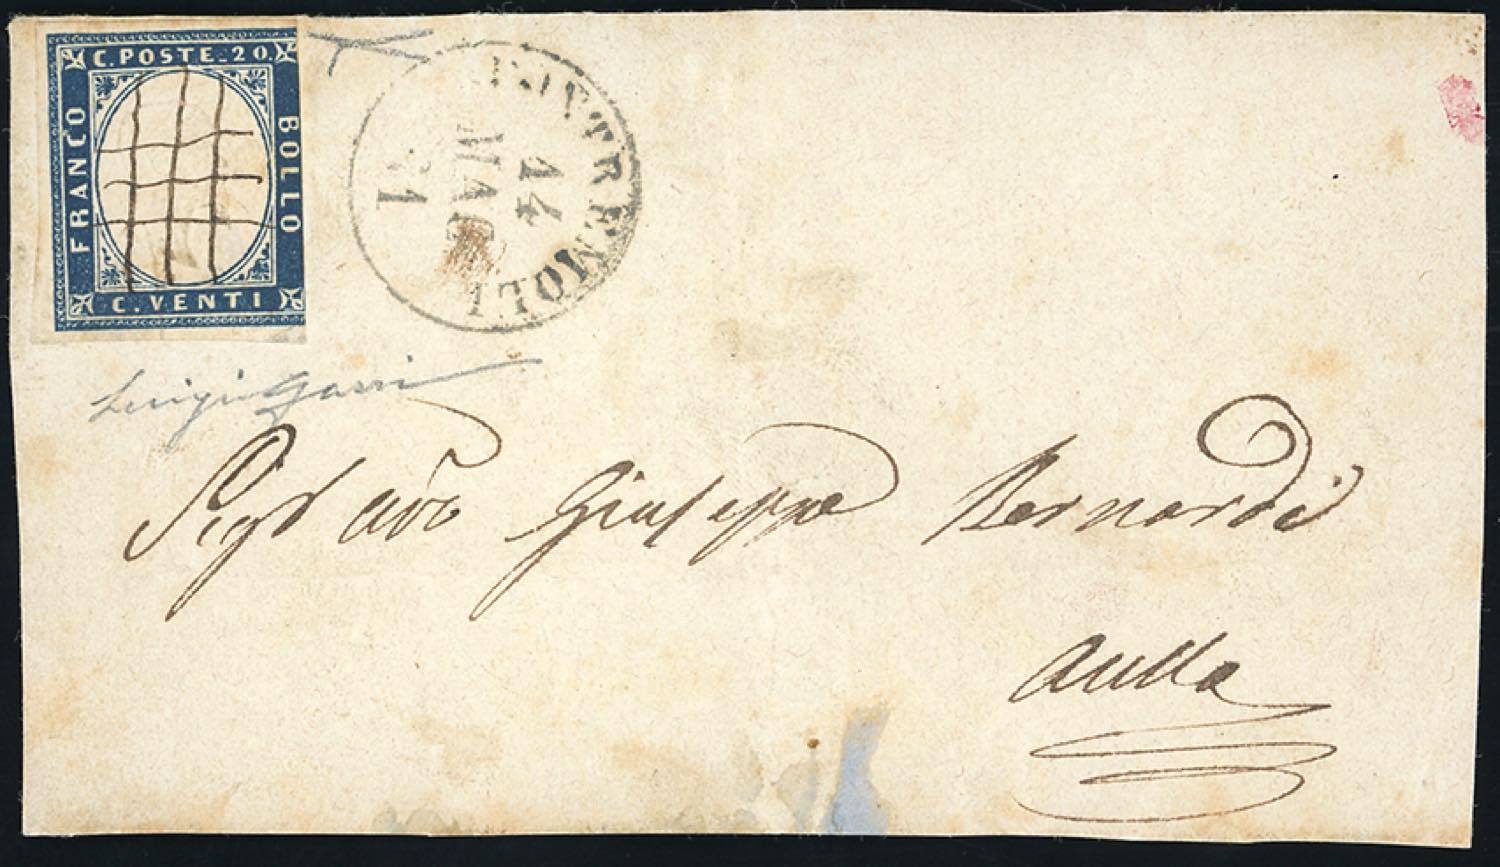 C. POSTE. 20.
FRANCO
BOLLO
C. VENTI
PONTREMOLI
14
MAG
61
Luigi Gazzi
Sigr avo Giuseppe Bernardi
Aulla